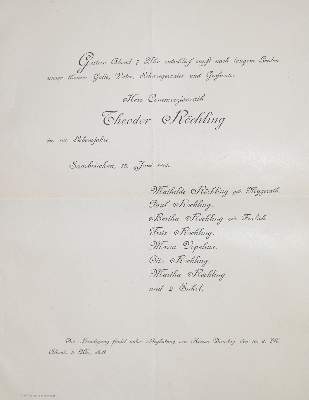 Gestern Abend 7 Uhr entschlief sanft nach langem Leiden
unser theurer Gatte, Vater, Schwiegervater und Großvater
Herr Commerzienrath
Theodor Röchling
im Lebensjahre.
Saarbrücken, 12. Juni
Mathilde Röchling geb.
Paul Röchling.
Bertha Röchling geb.
Fritz Röchling.
Maria Vopelius.
Otto Röchling
Martha Röchling
und 2 Enkel.
Die Beerdigung findet unter Begleitung von Herren Dienstag den d. Mts.
Abends Uhr, statt